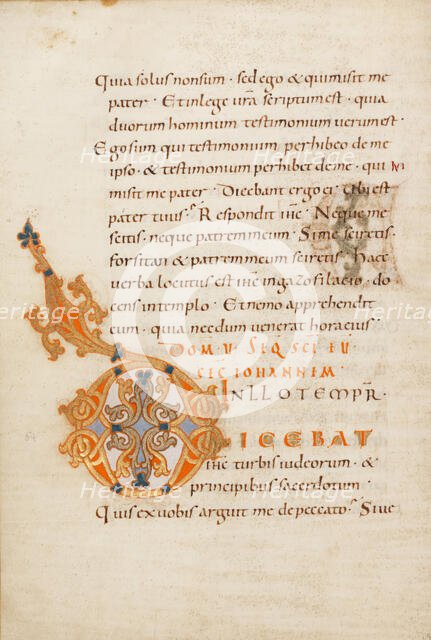 Quia solus non sum · sed ego & qui misit me
pater · Et in lege vr̄a scriptum est · quia
duorum hominum testimonium verum est ·
Ego sum qui testimonium perhibeo de me
ipso · & testimonium perhibet de me · qui
misit me pater · Dicebant ergo ei · Ubi est
pater tuus · Respondit ih̄c · Neque me
scitis · neque patrem meum · Si me sciretis ·
forsitan & patrem meum sciretis · Haec
verba locutus est ih̄c in gazofilacio · do
cens in templo · Et nemo apprehendit
eum · quia necdum venerat hora eius ·
DOM · V · SEQ SCI EU
SEC IOHANNEM
IN ILLO TEMPR ·
DICEBAT
ih̄c turbis iudeorum · &
principibus sacerdotum ·
Quis ex vobis arguit me de peccato · Si ve
heritage
Heritage
Images